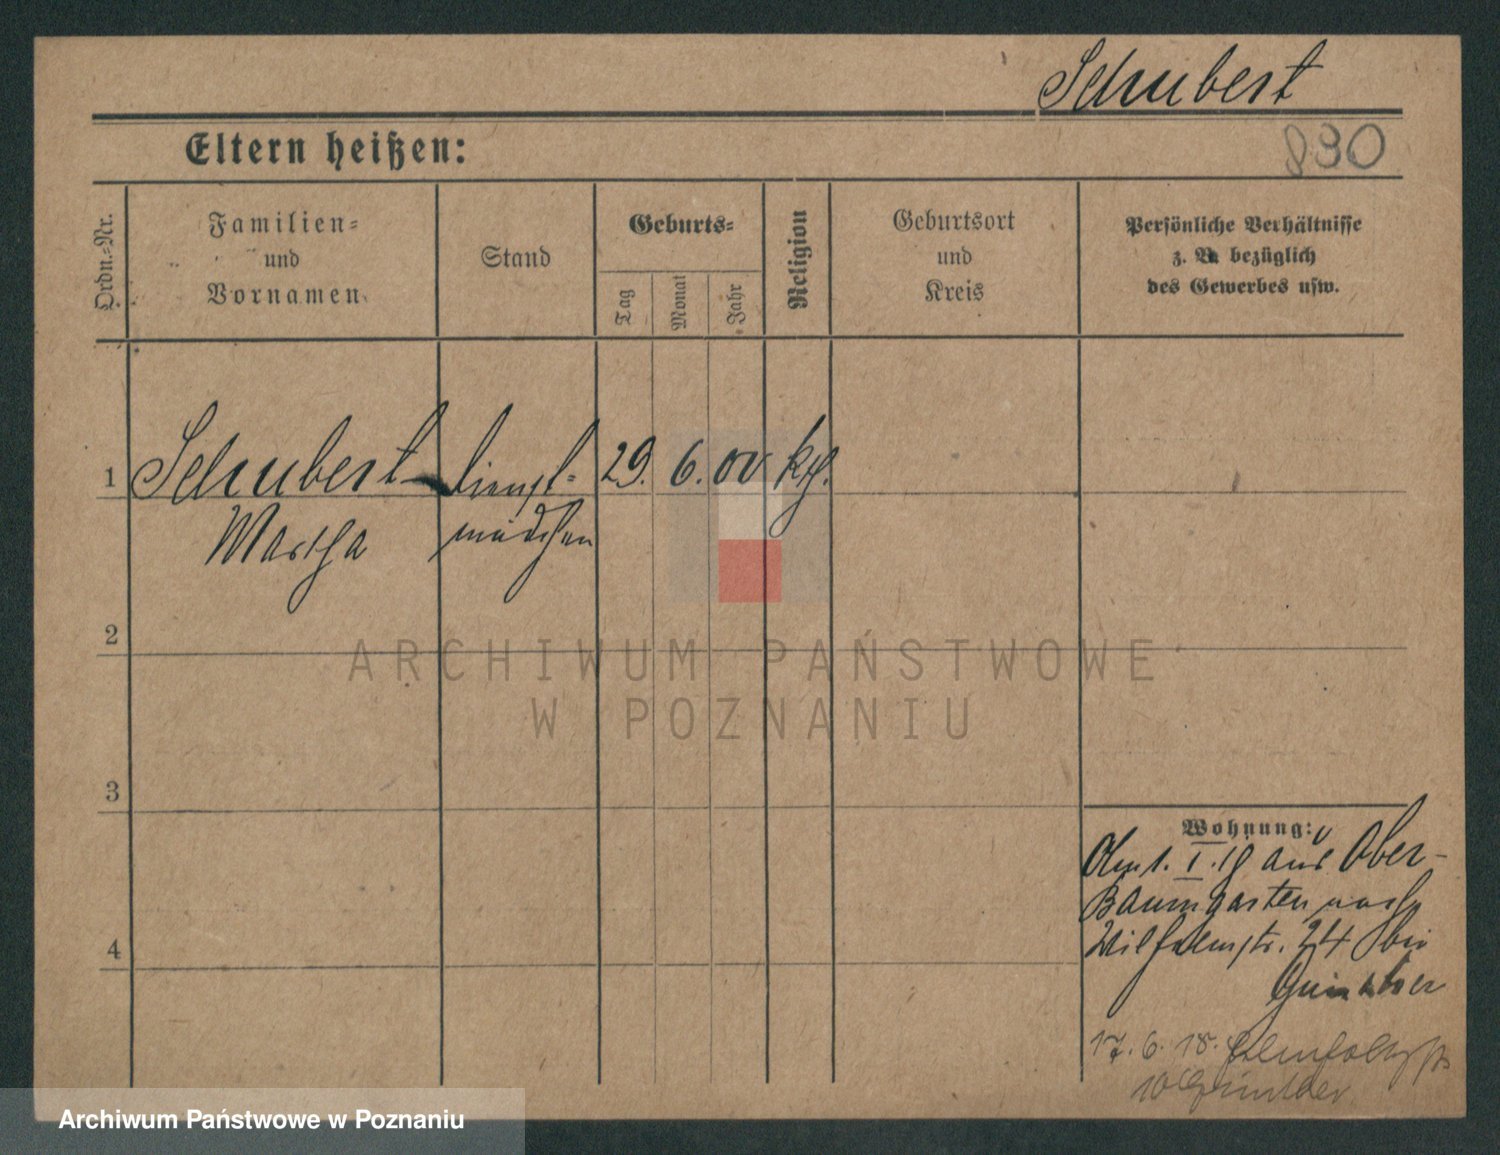 Schubert
Eltern heißen:
830
Ordn.-Nr.
Familien-
und
Vornamen
Stand
Geburts-
Tag
Monat
Jahr
Religion
Geburtsort
und
Kreis
Persönliche Verhältnisse
z. B. bezüglich
des Gewerbes usw.
1 Schubert Dienst- 29. 6. 00 kth.
Martha mädchen
2
ARCHIWUM PAŃSTWOWE
W POZNANIU
3
4
Wohnung:
Am 1. I. 18 aus Ober-
Baumgarten nach
Wilhelmstr. 24 bei
Günther
17. 6. 18.
10 Günther
Archiwum Państwowe w Poznaniu